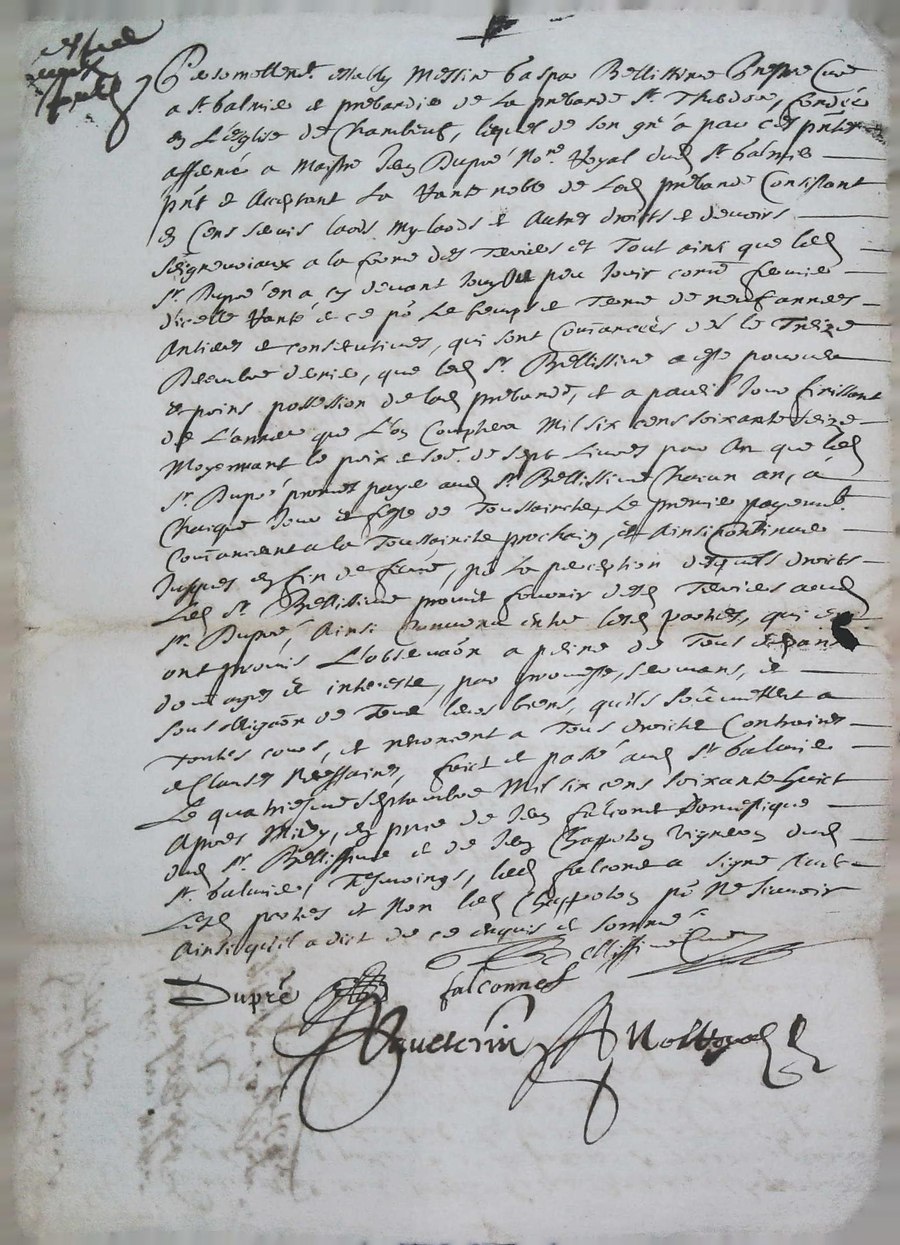 estably Messire Gaspar Bellissime Prebtre Curé
a St Galmier et prebandié de La prebande St. Theodore, fondée
en L'eglise de Chambeuf, lequel de son gré a par ces pntes
affermé a Maistre Jean Dupré No.re Royal dud. St Galmier
pnt et acceptant La Rante noble de Lad. prebande Consistant
en Cens servis laods mylaods et autres droicts et devoirs
seigneuriaux a la forme des Terriers et Tout ainsi que led.
Sr. Dupré en a cy devant jouy ou peu jouir come fermier
d'icelle Rante et ce po. Le temps et Terme de neuf années
Antieres et consecutives, qui sont Comancées des le Treize
Decembre dernier, que led. Sr. Bellissime a esté pourveu
et prins possession de lad. prebande, et a pareil Jour finissant
de L'année que L'on Comptera Mil six cens soixante seize
Moyennant le prix et so.e de sept Livres par An que led.
Sr. Dupré promet payer aud. Sr. Bellissime Chacun an, a
Chaique Jour et feste de Toussaincts, Le premier payement
Comancant a la Toussaincts prochain, et Ainsi Continuer
Jusques en fin de ferme, po. La perception desquels droicts
Led. Sr. Bellissime promet fournir desd. Terriers aud.
Sr. Dupré, Ainsi Convenu entre lesd. parties, qui en
ont promis L'observaon a peine de Tous despans
domages et interests, par promesse, sermans, et
soubsobligaon de Tous leurs biens, qu'ils soubmettent a
Toutes cours, et renoncent a Tous droicts Contraires
et Clauses Necessaires, faict et passé aud. St Galmier
Le quatriesme septembre Mil six cens soixante huict
Apres Midy, en pnce de Jean falconet Domestique
dud. Sr. Bellissime et de Jean Chappelon Vigneron dud.
St. Galmier, Tesmoings, led. falconet a signé avec
Lesd. parties et Non led. Chappelon po. Ne scavoir
Ainsi qu'il a dict de ce enquis et sommé
Bellissime Curé
Dupré falconnet
No Royal